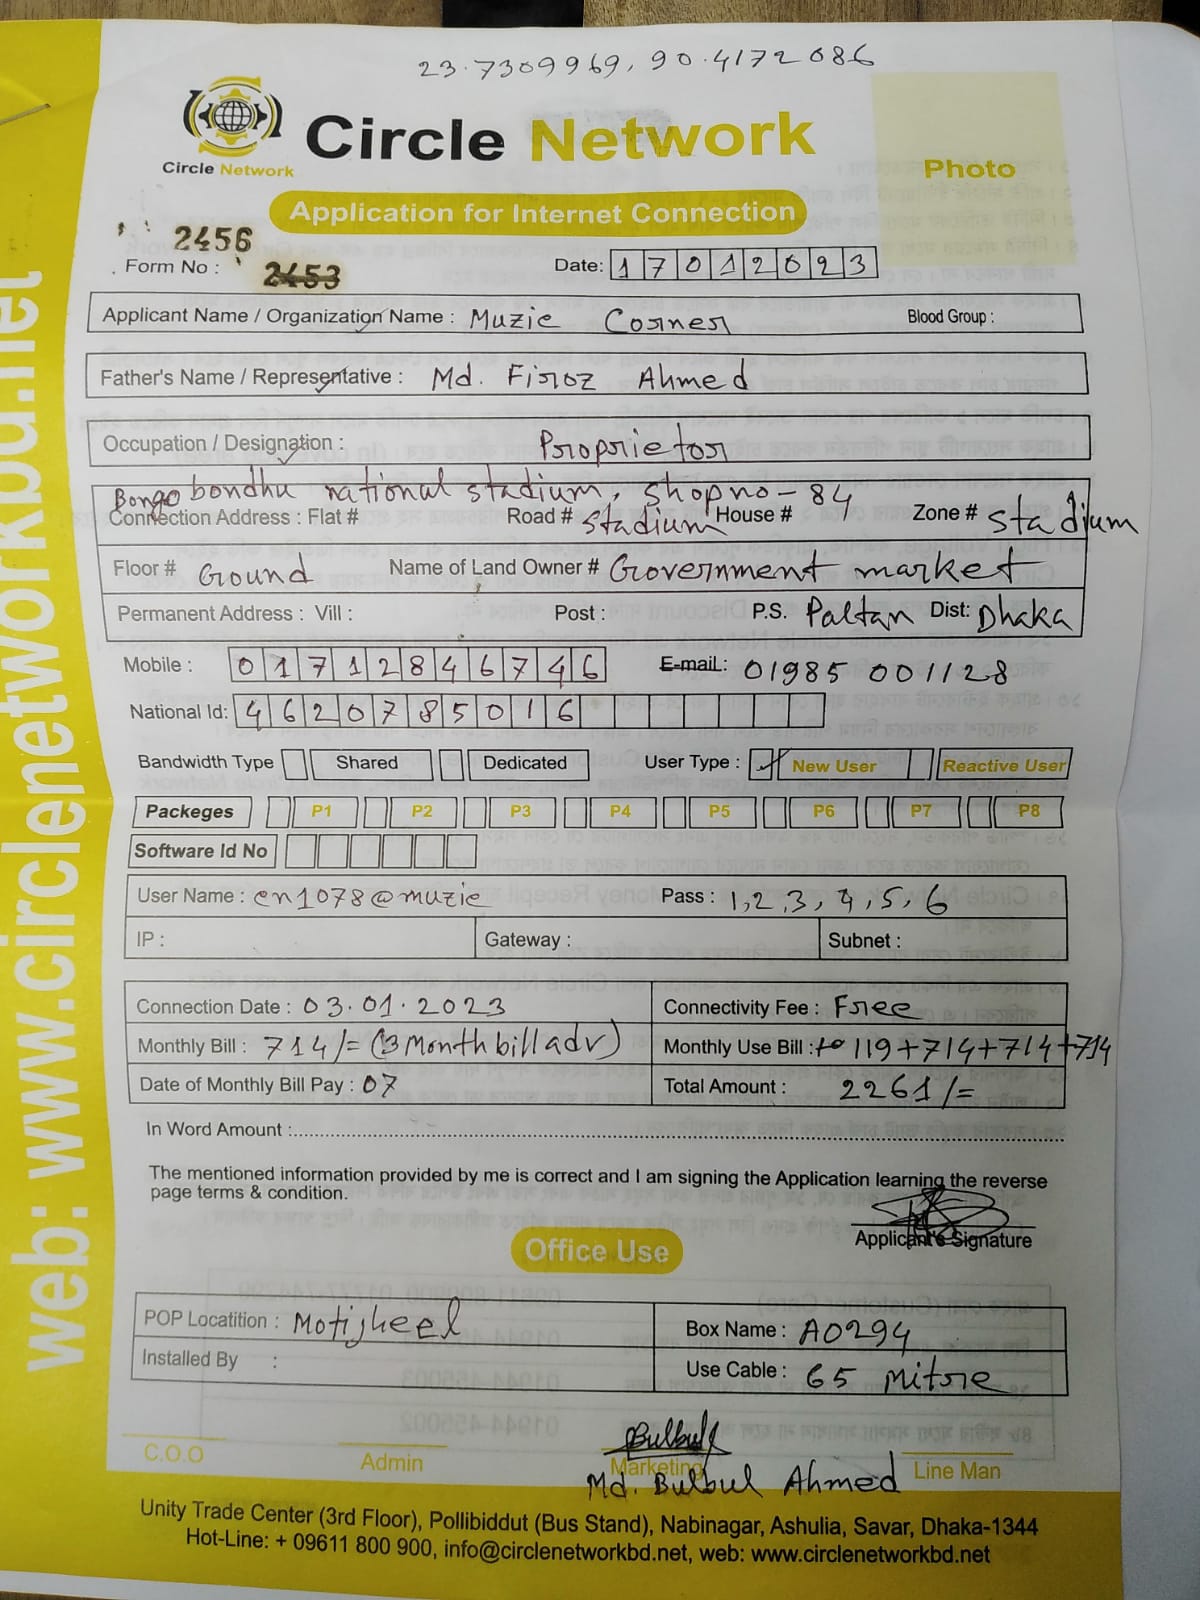 23.7309969, 90.4172086
Circle Network
Circle Network
Photo
Application for Internet Connection
2456
Form No : 2453
Date: 17012023
Applicant Name / Organization Name : Muzic Corner Blood Group :
Father's Name / Representative : Md. Firoz Ahmed
Occupation / Designation : Proprietor
Bongobondhu national stadium, shop no - 84
Connection Address : Flat # Road # stadium House # Zone # stadium
Floor # Ground Name of Land Owner # Government market
Permanent Address : Vill : Post : P.S. Paltan Dist: Dhaka
Mobile : 01712846746 E-mail: 01985 001128
National Id: 4620785016
Bandwidth Type Shared Dedicated User Type : ✓ New User Reactive User
Packeges P1 P2 P3 P4 P5 P6 P7 P8
Software Id No
User Name : cn1078@muzic Pass : 1,2,3,4,5,6
IP : Gateway : Subnet :
Connection Date : 03.01.2023 Connectivity Fee : Free
Monthly Bill : 714/= (3 Month bill adv) Monthly Use Bill : 119+714+714+714
Date of Monthly Bill Pay : 07 Total Amount : 2261/=
In Word Amount :
The mentioned information provided by me is correct and I am signing the Application learning the reverse
page terms & condition.
Applicant's Signature
Office Use
POP Locatition : Motijheel Box Name : A0294
Installed By : Use Cable : 65 Mitre
Bulbul
C.O.O Admin Marketing Line Man
Md. Bulbul Ahmed
Unity Trade Center (3rd Floor), Pollibiddut (Bus Stand), Nabinagar, Ashulia, Savar, Dhaka-1344
Hot-Line: + 09611 800 900, info@circlenetworkbd.net, web: www.circlenetworkbd.net
web: www.circlenetworkbd.net